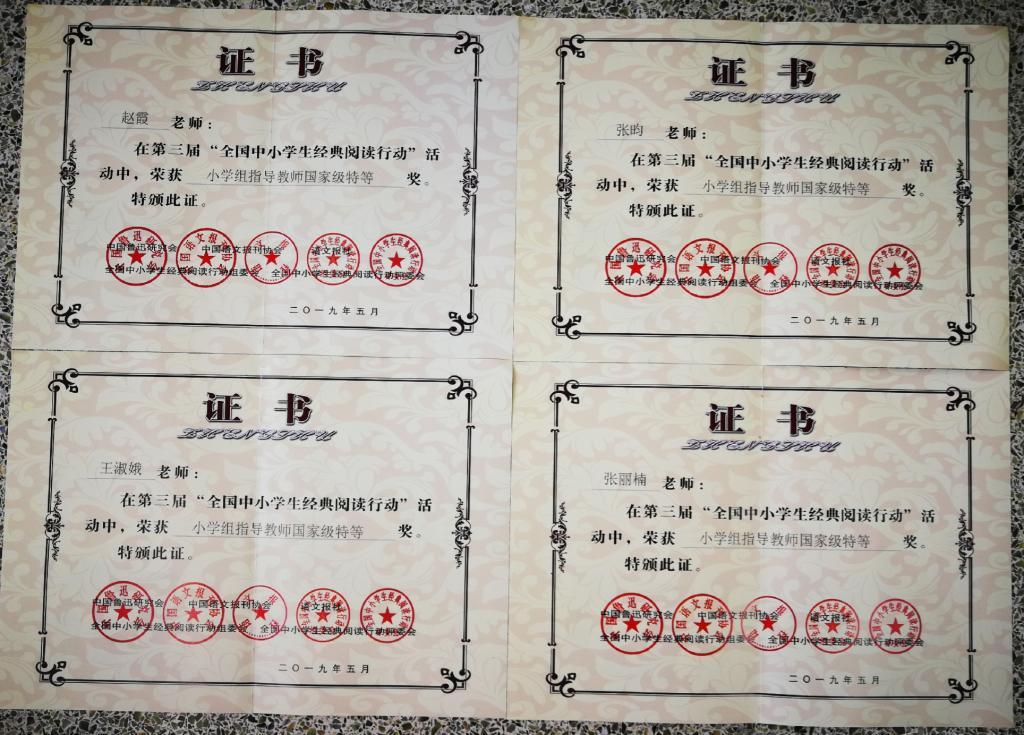 证书
ZHENGSHU
赵霞 老师：
在第三届“全国中小学生经典阅读行动”活
动中，荣获 小学组指导教师国家级特等 奖。
特颁此证。
中国鲁迅研究会 中国语文报刊协会 语文报社
全国中小学生经典阅读行动组委会 全国中小学生经典阅读行动评委会
二〇一九年五月
证书
ZHENGSHU
张昀 老师：
在第三届“全国中小学生经典阅读行动”活
动中，荣获 小学组指导教师国家级特等 奖。
特颁此证。
中国鲁迅研究会 中国语文报刊协会 语文报社
全国中小学生经典阅读行动组委会 全国中小学生经典阅读行动评委会
二〇一九年五月
证书
ZHENGSHU
王淑娥 老师：
在第三届“全国中小学生经典阅读行动”活
动中，荣获 小学组指导教师国家级特等 奖。
特颁此证。
中国鲁迅研究会 中国语文报刊协会 语文报社
全国中小学生经典阅读行动组委会 全国中小学生经典阅读行动评委会
二〇一九年五月
证书
ZHENGSHU
张丽楠 老师：
在第三届“全国中小学生经典阅读行动”活
动中，荣获 小学组指导教师国家级特等 奖。
特颁此证。
中国鲁迅研究会 中国语文报刊协会 语文报社
全国中小学生经典阅读行动组委会 全国中小学生经典阅读行动评委会
二〇一九年五月